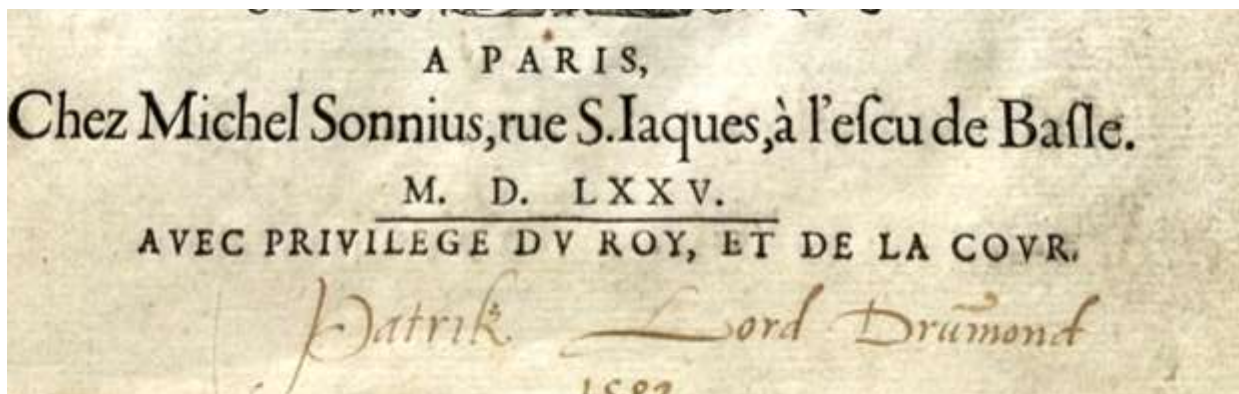 A PARIS,
Chez Michel Sonnius, rue S. Iaques, à l'eſcu de Baſle.
M. D. LXXV.
AVEC PRIVILEGE DV ROY, ET DE LA COVR.
Patrik Lord Drūmond